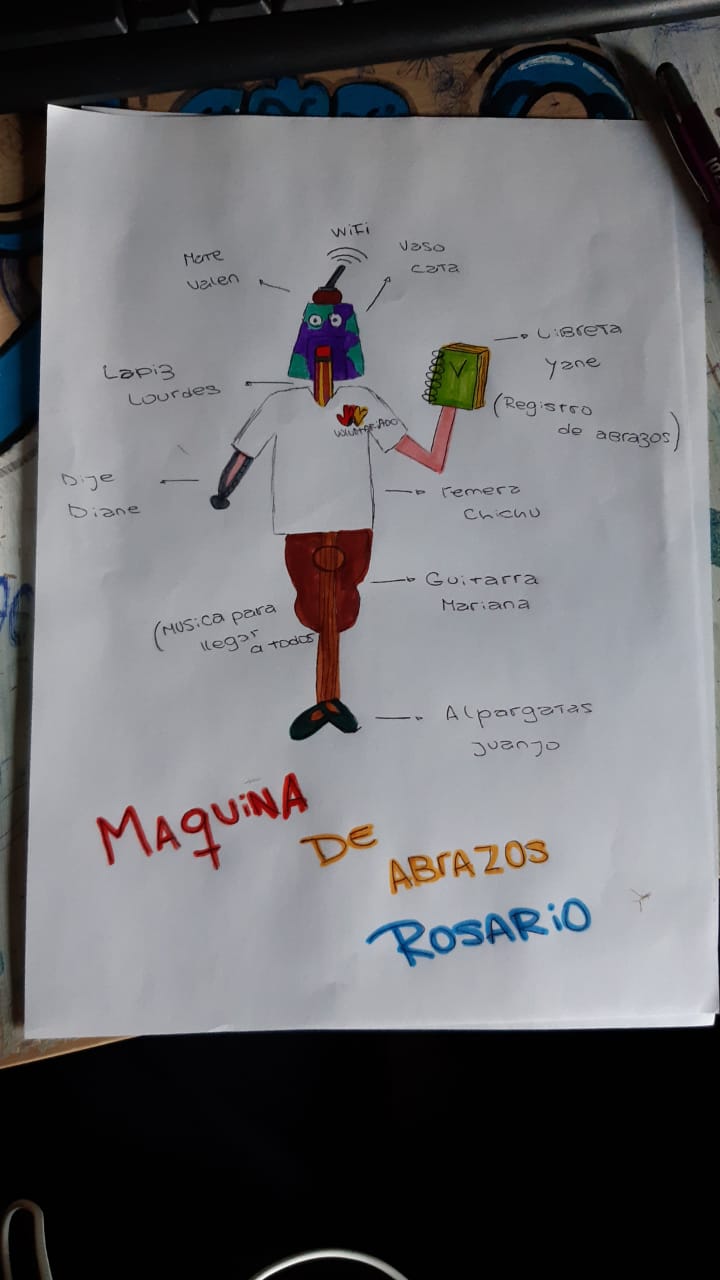 WiFi
Mate
Valen
Vaso
Cata
Libreta
Yane
(Registro
de abrazos)
Lapiz
Lourdes
VOLUNTARIADO
Dije
Diane
remera
Chichu
Guitarra
Mariana
(Musica para
llegar
a todos
Alpargatas
Juanjo
MAQUiNA
DE
ABrAZOS
ROSARiO